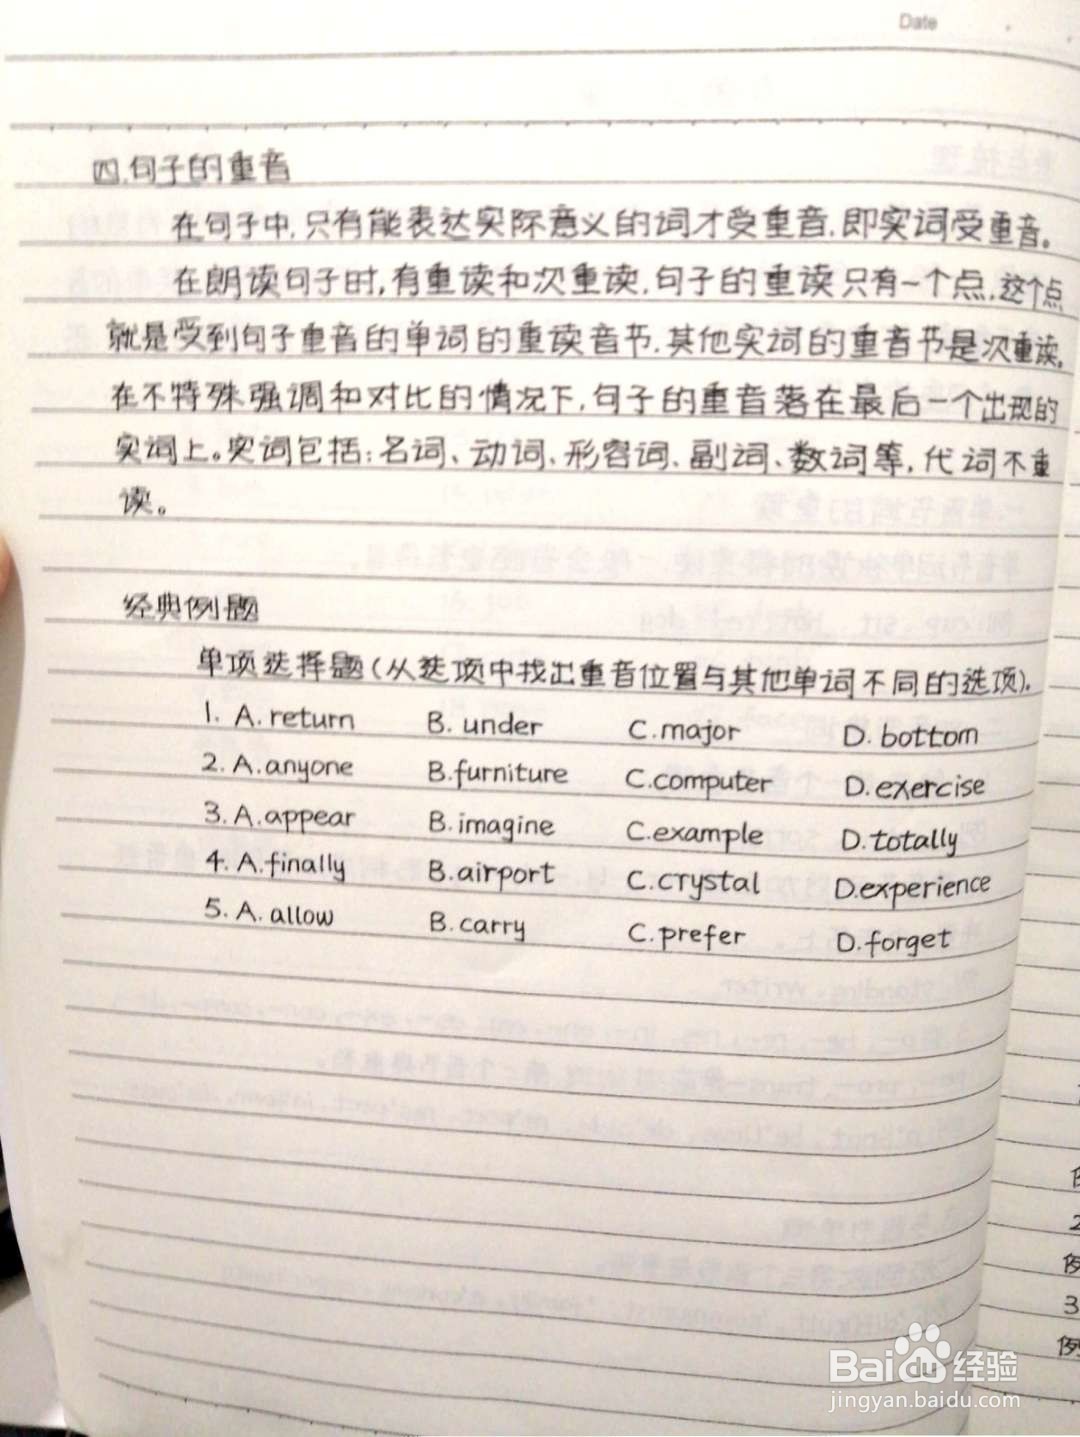 Date
四.句子的重音
在句子中,只有能表达实际意义的词才受重音,即实词受重音。
在朗读句子时,有重读和次重读,句子的重读只有一个点,这个点
就是受到句子重音的单词的重读音节,其他实词的重音节是次重读,
在不特殊强调和对比的情况下,句子的重音落在最后一个出现的
实词上。实词包括:名词、动词、形容词、副词、数词等,代词不重
读。
经典例题
单项选择题(从选项中找出重音位置与其他单词不同的选项).
1. A. return B. under C. major D. bottom
2. A. anyone B. furniture C. computer D. exercise
3. A. appear B. imagine C. example D. totally
4. A. finally B. airport C. crystal D. experience
5. A. allow B. carry C. prefer D. forget
2
例
3
例
Baidu 经验
jingyan.baidu.com